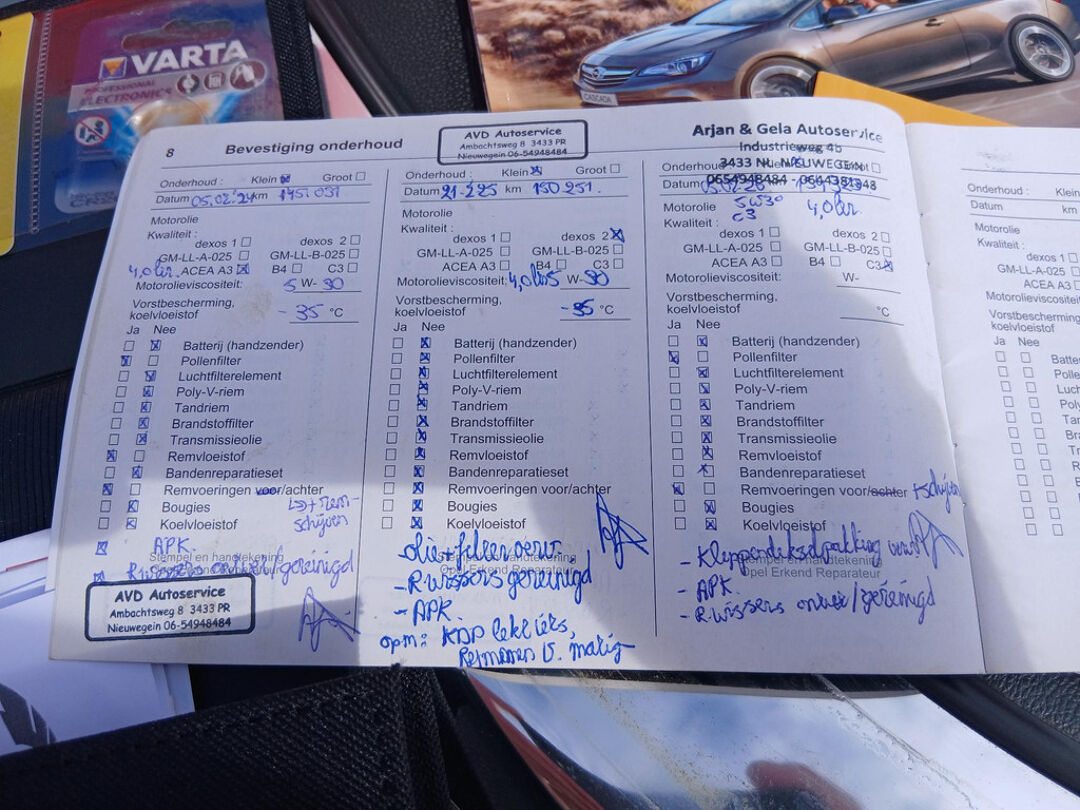 VARTA
PROFESSIONAL
ELECTRONICS
CASCADA
8
Bevestiging onderhoud
AVD Autoservice
Ambachtsweg 8 3433 PR
Nieuwegein 06-54948484
Arjan & Gela Autoservice
Industrieweg 4b
3433 NL NIEUWEGEIN
0654948484 -
Onderhoud : Klein Groot
Datum 05.02.'24 km 145.031
Motorolie
Kwaliteit :
dexos 1 dexos 2
GM-LL-A-025 GM-LL-B-025
4,0 ltr. ACEA A3 B4 C3
Motorolieviscositeit: 5 W- 30
Vorstbescherming,
koelvloeistof - 35 °C
Ja Nee
Batterij (handzender)
Pollenfilter
Luchtfilterelement
Poly-V-riem
Tandriem
Brandstoffilter
Transmissieolie
Remvloeistof
Bandenreparatieset
Remvoeringen voor/achter
Bougies
Koelvloeistof
APK.
Stempel en handtekening
R.wissers gereinigd
AVD Autoservice
Ambachtsweg 8 3433 PR
Nieuwegein 06-54948484
Onderhoud : Klein Groot
Datum 21-2'25 km 150251.
Motorolie
Kwaliteit :
dexos 1 dexos 2
GM-LL-A-025 GM-LL-B-025
ACEA A3 B4 C3
Motorolieviscositeit: 4,0 ltr 5 W-30
Vorstbescherming,
koelvloeistof -35 °C
Ja Nee
Batterij (handzender)
Pollenfilter
Luchtfilterelement
Poly-V-riem
Tandriem
Brandstoffilter
Transmissieolie
Remvloeistof
Bandenreparatieset
Remvoeringen voor/achter
Bougies
Koelvloeistof
- olie + filter verv.
Stempel en handtekening
Opel Erkend Reparateur
- R.wissers gereinigd
- APK.
opm: KDP lek
Remmen V. matig
Onderhoud Klein Groot
Datum km
Motorolie 5W30 4,0 ltr.
Kwaliteit : C3
dexos 1 dexos 2
GM-LL-A-025 GM-LL-B-025
ACEA A3 B4 C3
Motorolieviscositeit: W-
Vorstbescherming,
koelvloeistof °C
Ja Nee
Batterij (handzender)
Pollenfilter
Luchtfilterelement
Poly-V-riem
Tandriem
Brandstoffilter
Transmissieolie
Remvloeistof
Bandenreparatieset
Remvoeringen voor/achter + schijven
Bougies
Koelvloeistof
- Kleppendekselpakking verv.
Stempel en handtekening
Opel Erkend Reparateur
- APK.
- R.wissers gereinigd
Onderhoud : Klein
Datum km
Motorolie
Kwaliteit :
dexos 1
GM-LL-A-025
ACEA A3
Motorolieviscositeit
Vorstbescherming,
koelvloeistof
Ja Nee